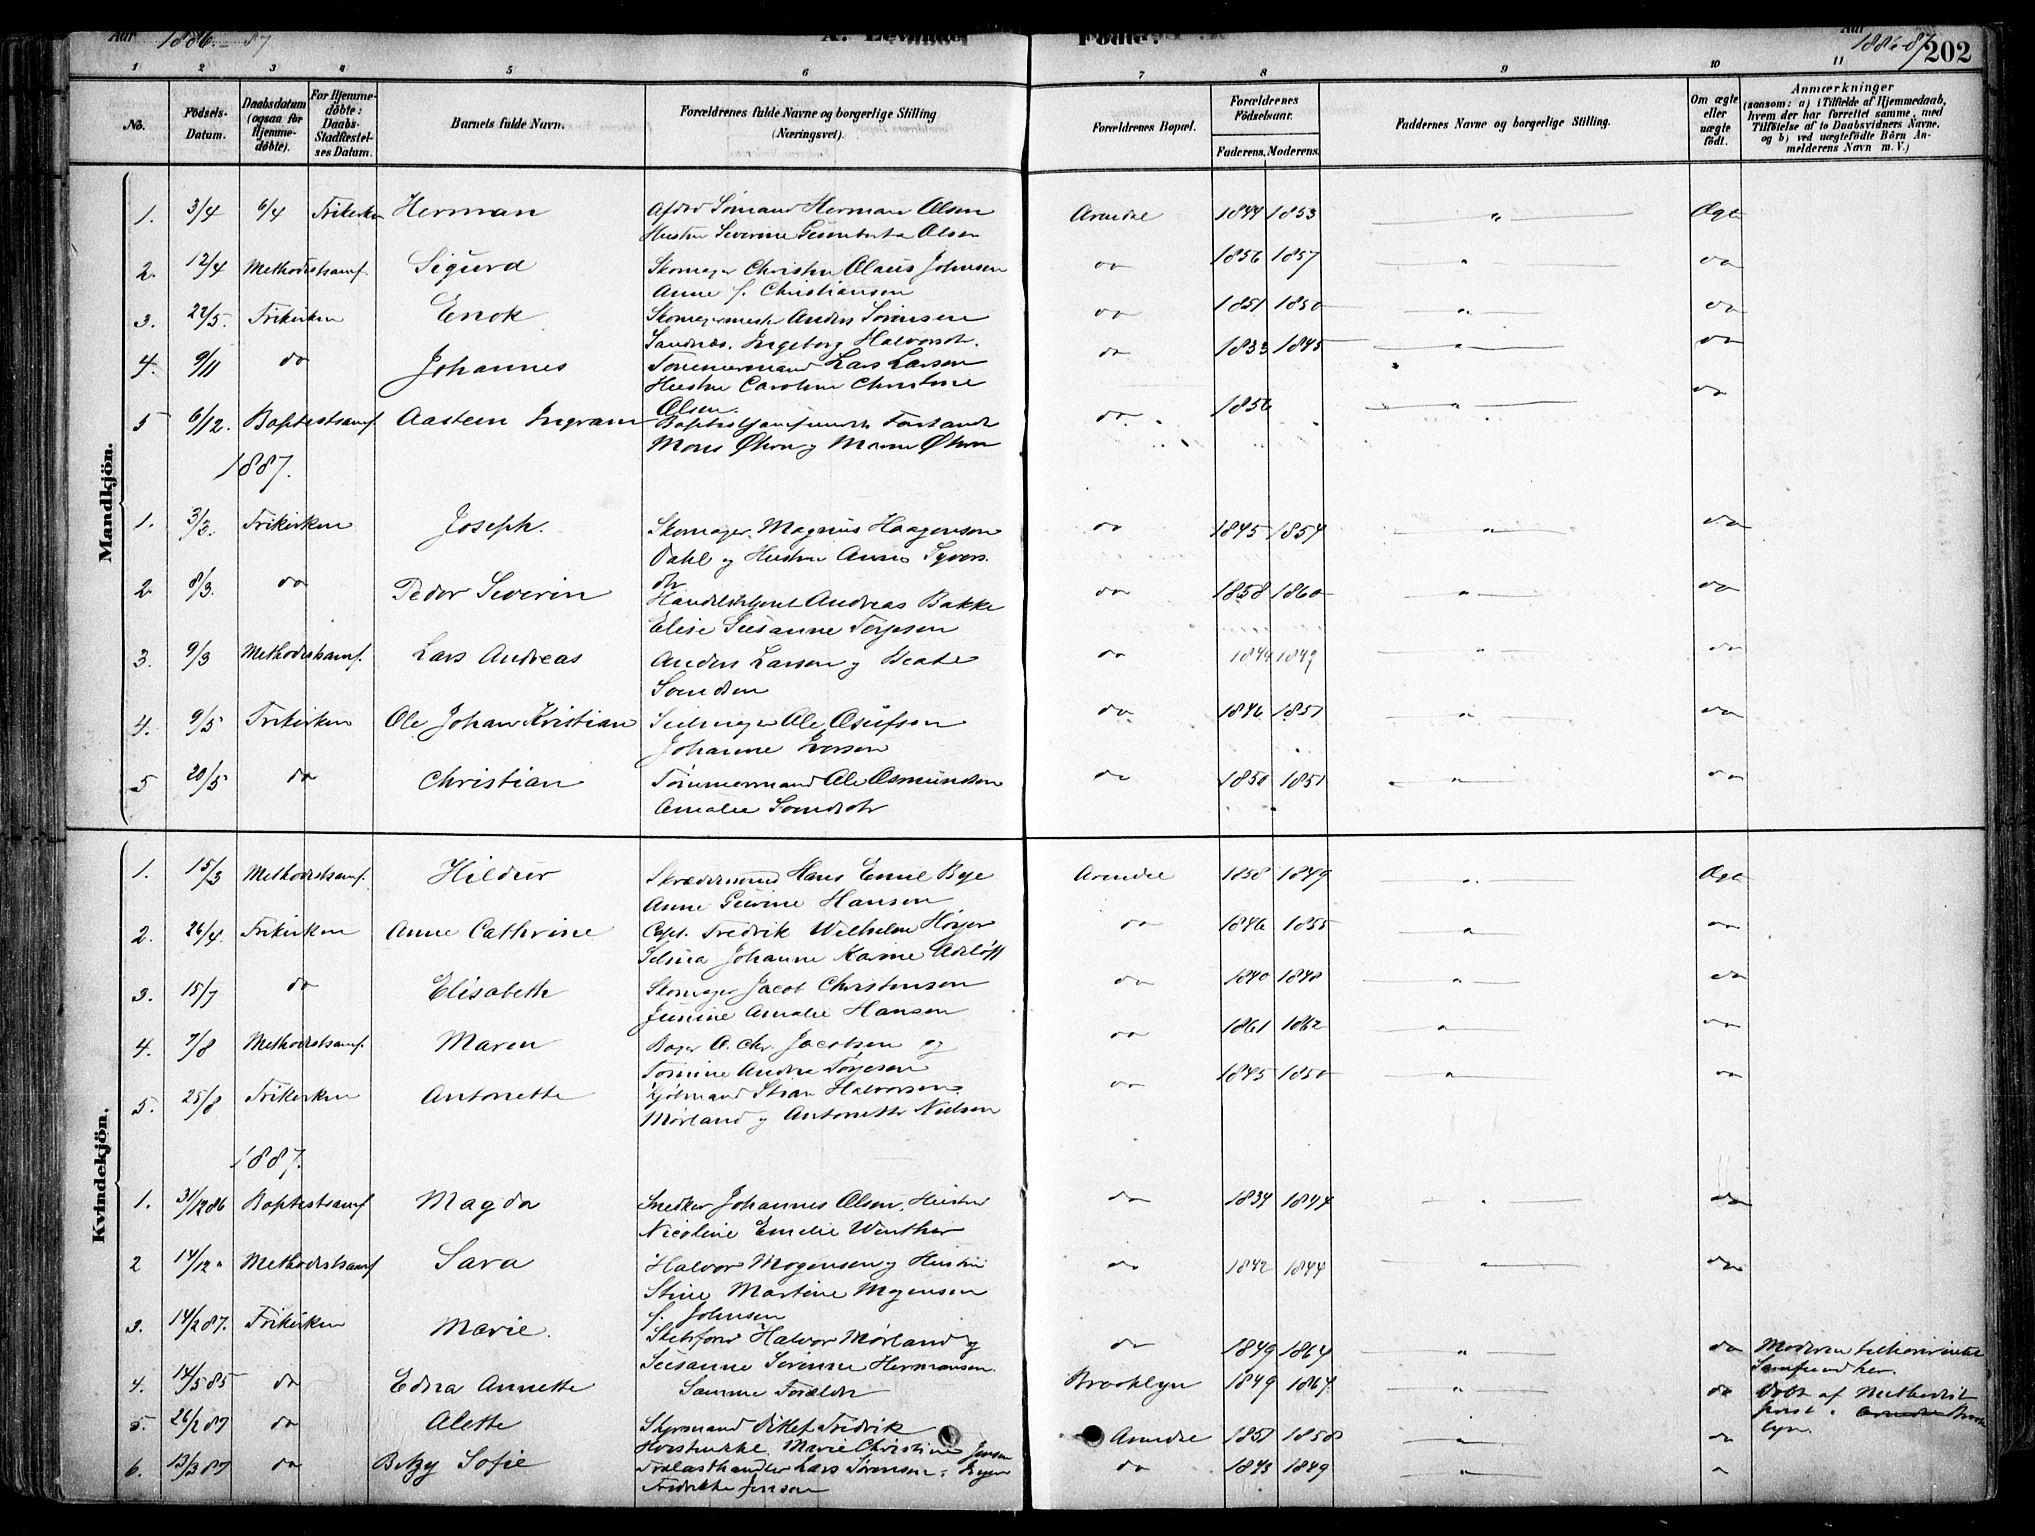 Aar 1886.-87 A. Levende Fødte. Aar 1886-87 202
1 2 3 4 5 6 7 8 9 10 11
No. Födsels-Datum. Daabsdatum (ogsaa for Hjemme-døbte). For Hjemme-døbte: Daabs-Stadfæstel-ses Datum. Barnets fulde Navn. Forældrenes fulde Navne og borgerlige Stilling (Næringsvei). Forældrenes Bopæl. Forældrenes Fødselsaar. Faderens. Moderens. Faddernes Navne og borgerlige Stilling. Om ægte eller uægte født. Anmærkninger (saasom: a) i Tilfælde af Hjemmedaab, hvem der har forrettet samme, med Tilføielse af to Daabsvidners Navne, og b) ved uægtefødte Börn An-melderens Navn m. V.)
Mandkjön.
1. 3/4 6/4 Frikirken Herman Afdød Sømand Herman Olsen Arendal 1844 1853 " Ægte
Hustru Severine Olsen
2. 12/4 Methodistsamf. Sigurd Skomager Christen Olaus Johnsen do 1856 1857 " do
Anne f. Christiansen
3. 22/5. Frikirken Enok Skomagermester Anders Sørensen do 1851 1850 " do
Sandnæs, Ingeborg Halvorsdt.
4. 9/11 do Johannes Tømmermand Lars Larsen do 1833 1845 " do
Hustru Caroline Christine
Olsen.
5 6/12. Baptistsamf. Aastein Ingram Baptistsamfundets Forstander do. 1856 " do
Mons Økern og Maren Økern
1887.
1. 3/3. Frikirken Joseph. Skomager Magnus Haagensen do 1845 1854 " do
Dahl og Hustru Anne Syvers.
dtr
2. 8/3. do Peder Severin Handelsbetjent Andreas Bakke do 1858 1860 " do
Elise Susanne Terjesen
3. 9/3 Methodistsamf. Lars Andreas Anders Larsen og Beate do 1844 1849 " do
4. 9/5 Frikirken Ole Johan Kristian Seilmager Ole Osufsen do 1846 1851 " do
Johanne Iversen
5 20/5 do Christian Tømmermand Ole Osmundsen do 1850 1851 " do
Amalie
Kvindekjön.
1. 15/3 Methodistsamf. Hildur Skrædersvend Hans Emil Bye Arendal 1858 1849 " Ægte
Anne Gurine Hansen
2. 26/4. Frikirken Anne Cathrine Capt. Fredrik Wilhelm Høyer do 1846 1855 " do
Johanne Karine
3. 15/7 do Elisabeth Skomager Jacob Christensen do 1840 1848 " do
Junine Amalie Hansen
4. 7/8 Methodistsamf. Maren Bager O. Chr. Jacobsen og do 1861 1862 " do
Tomine Andrea Terjesen
5. 25/8 Frikirken Antonette Halvorsen do 1845 1850 " do
Mørland og Antonette Nielsen
1887.
1. 31/12 86 Baptistsamf Magda Snedker Johannes Olsen, Hustru do 1834 1844 " do
Nicoline Emelie Winther
2 14/12 " Methodistsamf Sara Halvor Mogensen og Hustru do 1842 1844 " do
Stine Martine Mogensen
f. Johnsen
3. 14/2 87. Frikirken Marie. Halvor Mørland og do 1849 1864 " do Moderen
Susanne Severine Hermansen. Samfund her.
4. 14/5 85 do Edna Annette Samme Forældre Brooklyn 1849 1864. " do Døbt af Methodist
5. 26/2 87 do Alette Styrmand Ditlef Fredrik Arendal 1851 1858 " do præst i Arendal Brook
Marie Christine Jensen lyn.
6. 13/3 87 do Betzy Sofie Trælasthandler Lars Sørensen do 1843 1849 "
Fredrikke Jensen